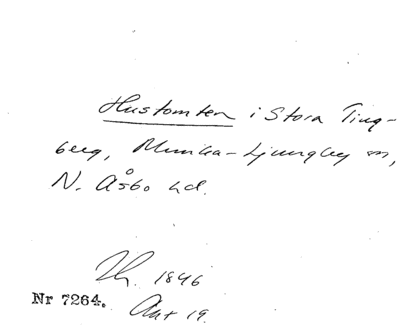 Hustomten i Stora Ting-
berg, Munka-Ljungby sn,
N. Åsbo hd.
1846
Nr 7264. Ant 19.